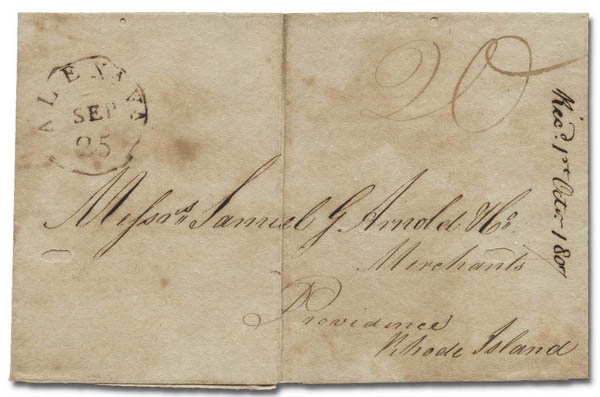 ALEX.VA
SEP
25
20
Messrs. Samuel G Arnold & Co
Merchants
Providence
Rhode Island
Recd. 1st Octor 1807